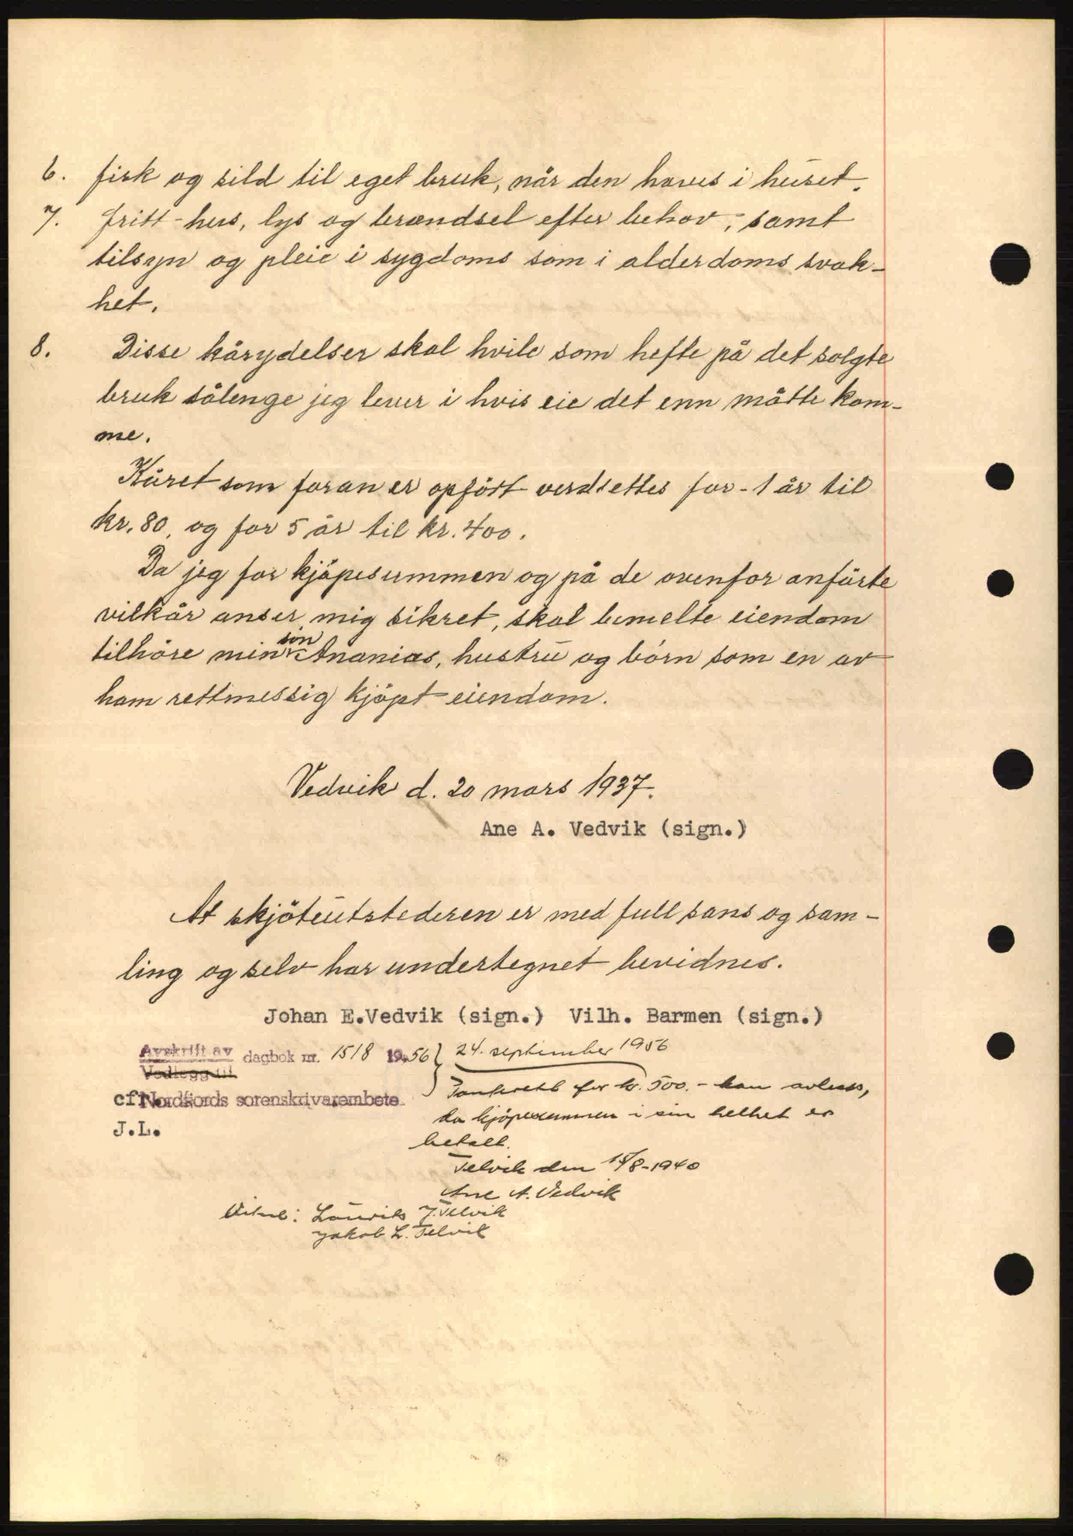 6. fisk og sild til eget bruk, når den haves i huset.
7. fritt hus, lys og brændsel efter behov, samt
tilsyn og pleie i sygdoms som i alderdoms svak-
het.
8. Disse kårydelser skal hvile som hefte på det solgte
bruk sålenge jeg lever i hvis eie det enn måtte kom-
me.
Kåret som foran er opført verdsettes for 1 år til
kr. 80, og for 5 år til kr. 400.
Da jeg for kjöpesummen og på de ovenfor anförte
vilkår anser mig sikret, skal bemelte eiendom
tilhöre min sön Ananias, hustru og börn som en av
ham rettmessig kjöpt eiendom.
Vedvik d. 20 mars 1937.
Ane A. Vedvik (sign.)
At skjöteutstederen er med full sans og sam-
ling og selv har undertegnet bevidnes.
Johan E.Vedvik (sign.) Vilh. Barmen (sign.)
Avskrift av
Vedlegg til
dagbok nr. 1518 1956
24. september 1956
cfr. Nordfjords sorenskrivarembete
J.L.
Panterett for kr. 500.- kan avleses,
da kjöpesummen i sin helhet er
betalt.
Telvik den 15/8-1940
Ane A. Vedvik
Vitne: Laurits J. Telvik
Jakob L. Telvik